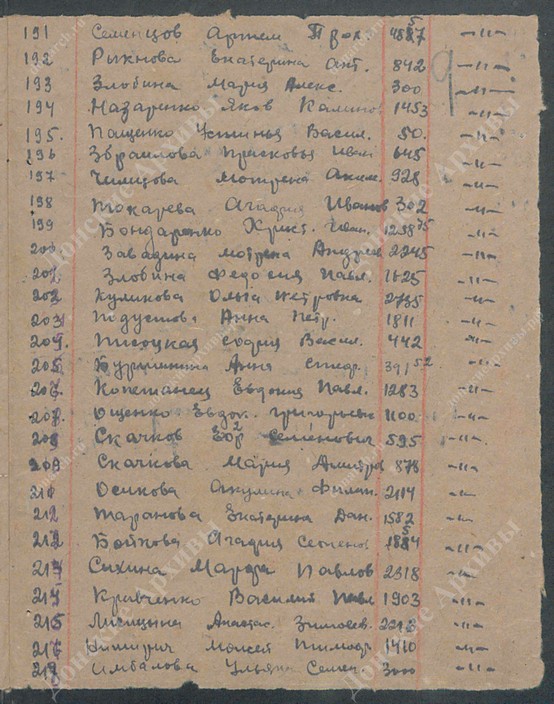 191 Семенцов Артем Прох. -"-
192 Рыжнова Екатерина Ант. 842 -"-
193 Злобина Мария Алекс. 300 -"-
194 Назаренко Яков Калинов 1453 -"-
195. Пащенко Устинья Васил. 50. -"-
196 Збраилова Прасковья Иван 645 -"-
197 Чимцова Мотрена Аким. 928 -"-
198 Токарева Агафия Иванов 302 -"-
199 Бондаренко Христ. Иван. 1258 -"-
200 Завадина Мотрена Андреев 2245 -"-
201 Злобина Федосия Павл. 1625 -"-
202 Куликова Ольга Петровна 2735 -"-
203 Анна Петр. 1811 -"-
204. Писоцкая София Васил. 442 -"-
205 Анна 391 52 -"-
206 Евдокия Павл. 1283 -"-
207. Ющенко Евдок. Григорьевн 1100 -"-
208 Скачков Егор Семенович 595 -"-
209 Скачкова Мария Дмитров 878 -"-
210 Осикова Акулина Филип. 2114 -"-
212 Таранова Екатерина Дан. 1582 -"-
212 Бойкова Агафия Семенов -"-
213 Сыхина Марфа Павлов 2318 -"-
214 Кривченко Василий Павл 1903 -"-
215 Лисицына Анастас. Зиновев. -"-
216 Моисей Тимоф. 1410 -"-
217 Имбалова Ульяна Семен. 3000 -"-